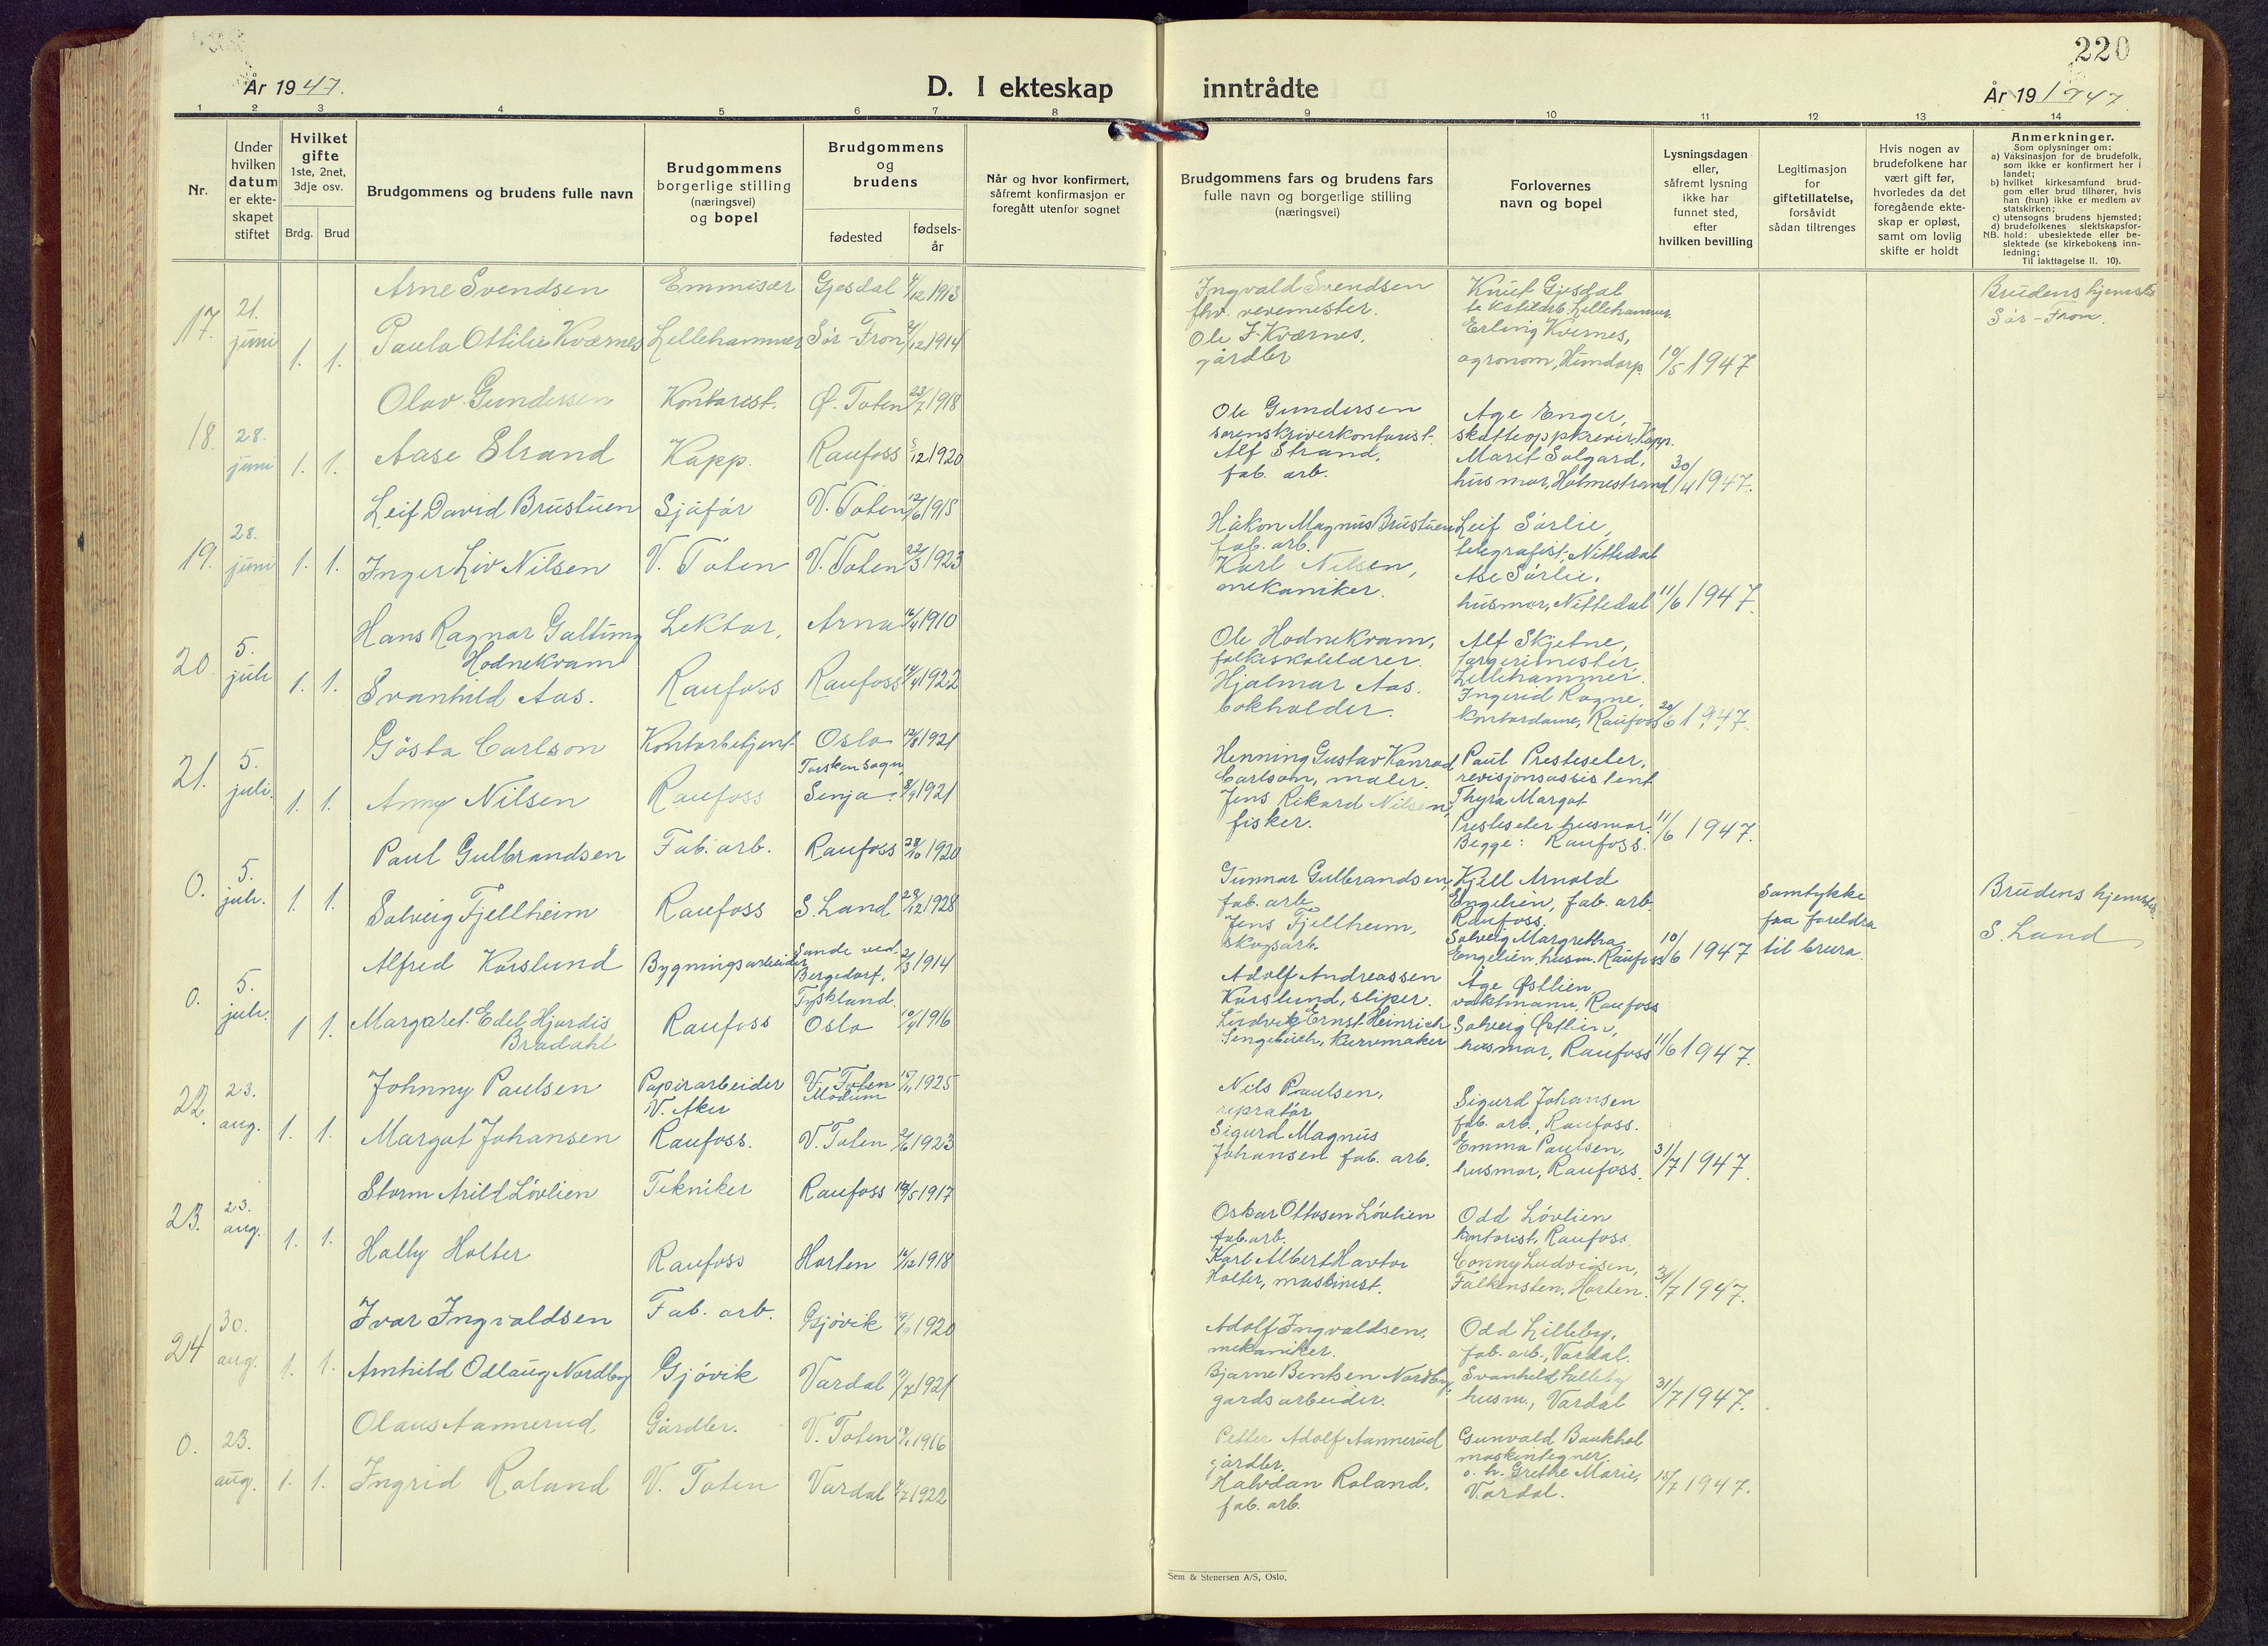 220
År 1947.
D. I ekteskap inntrådte
År 19 1947
1 2 3 4 5 6 7 8 9 10 11 12 13 14
Nr.
Under hvilken datum er ekte-skapet stiftet
Hvilket gifte
1ste, 2net, 3dje osv.
Brdg. Brud
Brudgommens og brudens fulle navn
Brudgommens borgerlige stilling (næringsvei) og bopel
Brudgommens og brudens
fødested
fødsels-år
Når og hvor konfirmert, såfremt konfirmasjon er foregått utenfor sognet
Brudgommens fars og brudens fars fulle navn og borgerlige stilling (næringsvei)
Forlovernes navn og bopel
Lysningsdagen eller, såfremt lysning ikke har funnet sted, efter hvilken bevilling
Legitimasjon for giftetillatelse, forsåvidt sådan tiltrenges
Hvis nogen av brudefolkene har vært gift før, hvorledes da det foregående ekte-skap er opløst, samt om lovlig skifte er holdt
Anmerkninger.
Som oplysninger om:
a) Vaksinasjon for de brudefolk, som ikke er konfirmert her i landet;
b) hvilket kirkesamfund brud-gom eller brud tilhører, hvis han (hun) ikke er medlem av statskirken;
c) utensogns brudens hjemsted;
d) brudefolkenes slektskapsfor-hold: ubeslektede eller be-slektede (se kirkebokens inn-ledning;
NB.
Til iakttagelse II. 10).
17. 21. juni 1. 1.
Arne Svendsen Emmisær Gjesdal 4/12 1913
Paula Ottilie Kværnes Lillehammer Sør-Fron /12 1914
Ingvald Svendsen
fhv. vevemester.
Ole J. Kværnes,
gårdbr
Knut Gjesdal
tekstilarb. Lillehammer
Erling Kvernes,
agronom, Hundorp. 10/5 1947
Brudens hjemsted
Sør-Fron.
18. 28. juni 1. 1.
Olav Gundersen Kontorist. Ø. Toten 23/7 1918
Aase Strand Kapp. Raufoss 5/12 1920
Ole Gundersen
sorenskriverkontorist.
Alf Strand,
fab. arb.
Age Enger,
skatteoppkrever, Kapp.
Marit Solgard,
husmor, Holmestrand 30/4 1947.
19. 28. juni 1. 1.
Leif David Brustuen Sjåfør V. Toten 12/6 1915
Inger Liv Nilsen V. Toten V. Toten 22/3 1923
Håkon Magnus Brustuen
fab. arb.
Karl Nilsen,
mekaniker.
Leif Sørlie,
telegrafist, Nittedal
Ase Sørlie,
husmor, Nittedal 11/6 1947.
20 5. juli 1. 1.
Hans Ragnar Galtung Lektor, Arna 16/4 1910
Hodnekvam
Svanhild Aas. Raufoss Raufoss 14/4 1922
Ole Hodnekvam,
folkeskolelærer.
Hjalmar Aas.
bokholder.
Alf Skjetne,
fargerimester,
Lillehammer.
Ingerid Rogne,
kontordame, Raufoss 20/6 1947.
21. 5. juli. 1. 1.
Gösta Carlson Kontorbetjent Oslo 12/8 1921
Anny Nilsen Raufoss Torsken sogn, Senja. 8/9 1921
Henning Gustav Konrad
Carlson, maler.
Jens Rikard Nilsen,
fisker.
Paul Presteseter,
revisjonsassistent
Thyra Margot
Presteseter husmor.
Begge: Raufoss. 11/6 1947.
0. 5. juli. 1. 1.
Paul Gulbrandsen Fab. arb. Raufoss 28/10 1920
Solveig Fjellheim Raufoss S. Land 28/12 1928
Gunnar Gulbrandsen,
fab. arb
Jens Fjellheim,
skogsarb.
Kjell Arnold
Engelien, fab. arb.
Raufoss.
Solveig Margretha
Engelien, husm. Raufoss 10/6 1947
Samtykke
fra foreldra
til brura.
Brudens hjemsted.
S. Land
0. 5. juli. 1 1.
Alfred Korslund Bygningsarbeider Sande ved Bergedorf, Tyskland. 2/3 1914
Margaret Edel Hjørdis Raufoss Oslo 10/4 1916
Bradahl
Adolf Andreassen
Korslund, sliper.
Ludvig Ernst Heinrich
Sengebusch, Kurvmaker
Åge Østlien,
vaktmann, Raufoss
Solveig Østlien,
husmor, Raufoss 11/6 1947.
22. 23. aug. 1. 1.
Johnny Paulsen Papirarbeider V. Aker V. Toten Modum 17/11 1925
Margot Johansen Raufoss. V. Toten 2/6 1923
Nils Paulsen,
repratør
Sigurd Magnus
Johansen fab. arb.
Sigurd Johansen
fab. arb., Raufoss.
Emma Paulsen,
husmor, Raufoss. 31/7 1947.
23. 23. aug. 1. 1.
Storm Arild Løvlien Tekniker Raufoss 18/5 1917
Hally Holter Raufoss Horten 12/12 1918
Oskar Ottosen Løvlien
fab. arb.
Karl Albert Havtor
Holter, maskinist.
Odd Løvlien
kontorist, Raufoss.
Conny Ludvigsen,
Falkensten, Horten. 31/7 1947.
24 30. aug. 1. 1.
Ivar Ingvaldsen Fab. arb. Gjøvik 19/9 1920
Arnhild Odlaug Nordby Gjøvik Vardal 11/7 1921
Adolf Ingvaldsen,
mekaniker.
Bjarne Bentsen Nordby,
gardsarbeider.
Odd Lilleby,
fab. arb., Vardal.
Svanhild Lilleby
husm., Vardal 31/7 1947.
0. 23. aug. 1. 1.
Olaus Aannerud Gårdbr. V. Toten 1916
Ingrid Roland V. Toten Vardal 4/7 1922
Petter Adolf Aannerud
gårdbr.
Halvdan Roland,
fab. arb.
Gunvald Baukhol
maskintegner.
o. h. Grethe Marie,
Vardal. 15/7 1947.
Sem & Stenersen A/S, Oslo.